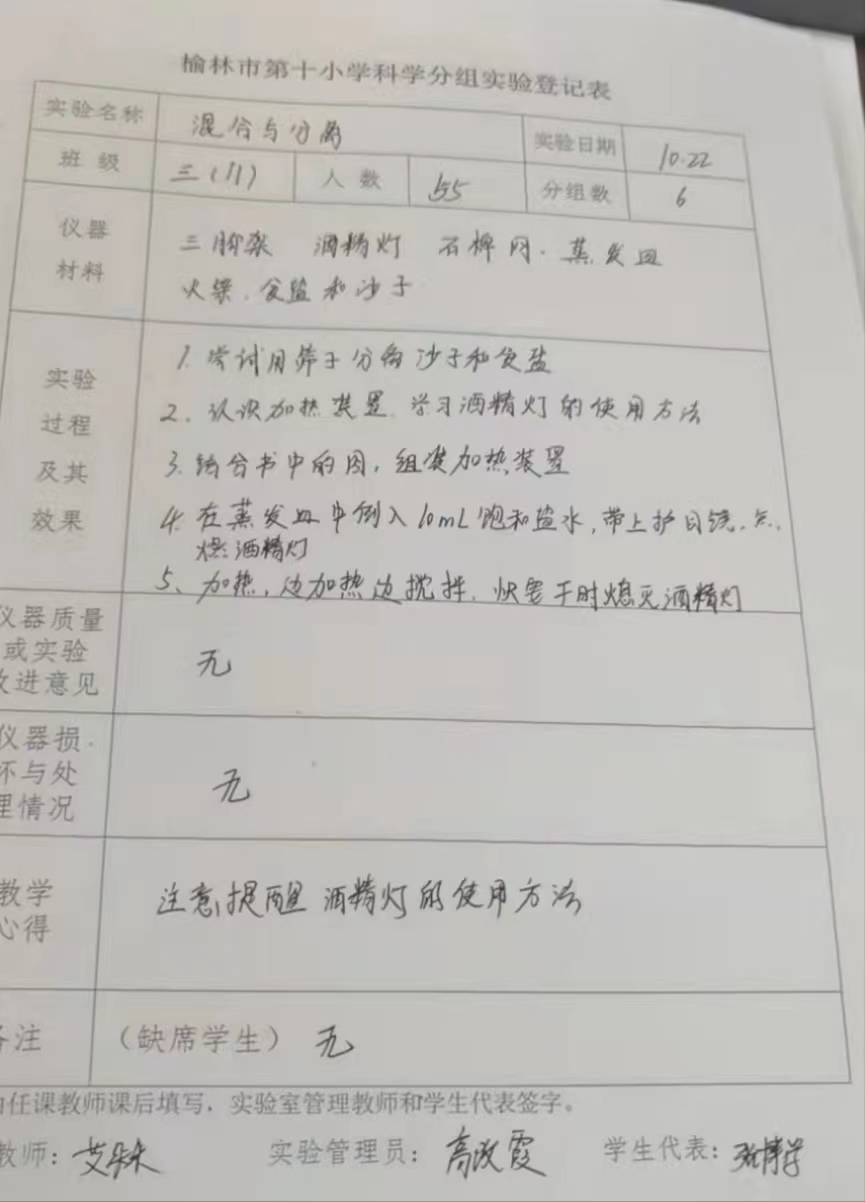 榆林市第十小学科学分组实验登记表
实验名称 混合与分离 实验日期 10.22
班级 三(11) 人数 55 分组数 6
仪器 三脚架 酒精灯 石棉网. 蒸发皿
材料 火柴. 食盐和沙子
实验
过程
及其
效果
1. 尝试用筛子分离沙子和食盐
2. 认识加热装置. 学习酒精灯的使用方法
3. 结合书中的图, 组装加热装置
4. 在蒸发皿中倒入10mL饱和盐水, 带上护目镜. 点.
燃酒精灯
5、加热, 边加热边搅拌. 快要干时熄灭酒精灯
仪器质量
或实验
改进意见
无
仪器损
坏与处
理情况
无
教学
心得
注意提醒 酒精灯的使用方法
备注 (缺席学生) 无
任课教师课后填写, 实验室管理教师和学生代表签字。
教师: 实验管理员: 学生代表: